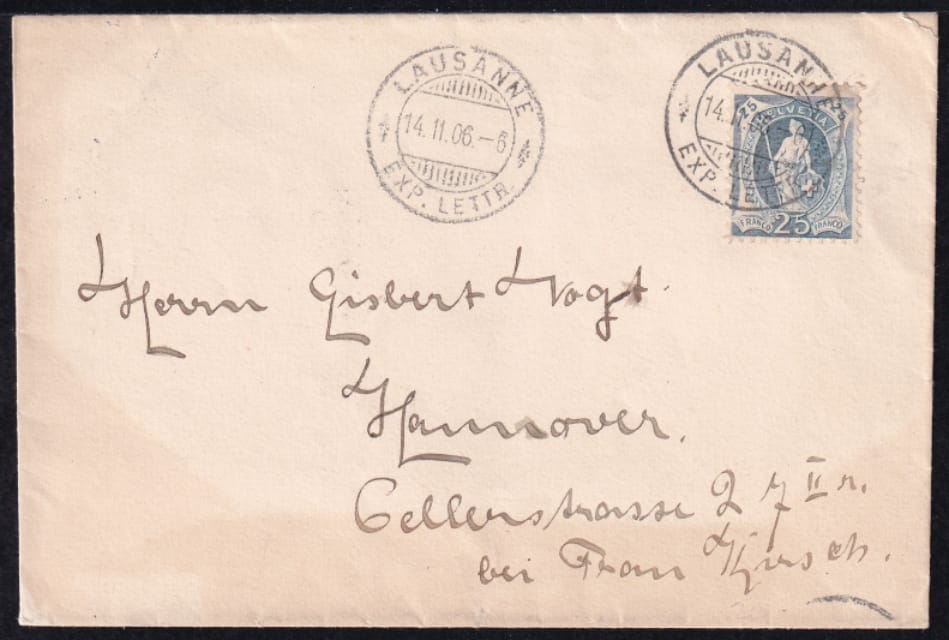 LAUSANNE
14.11.06.–6
EXP. LETTR.
LAUSANNE
14.
EXP. LE
25 25
HELVETIA
FRANCO 25 FRANCO
Herrn Gisbert Vogt.
Hannover.
Cellerstrasse 27 II r.
bei Frau Kirsch.